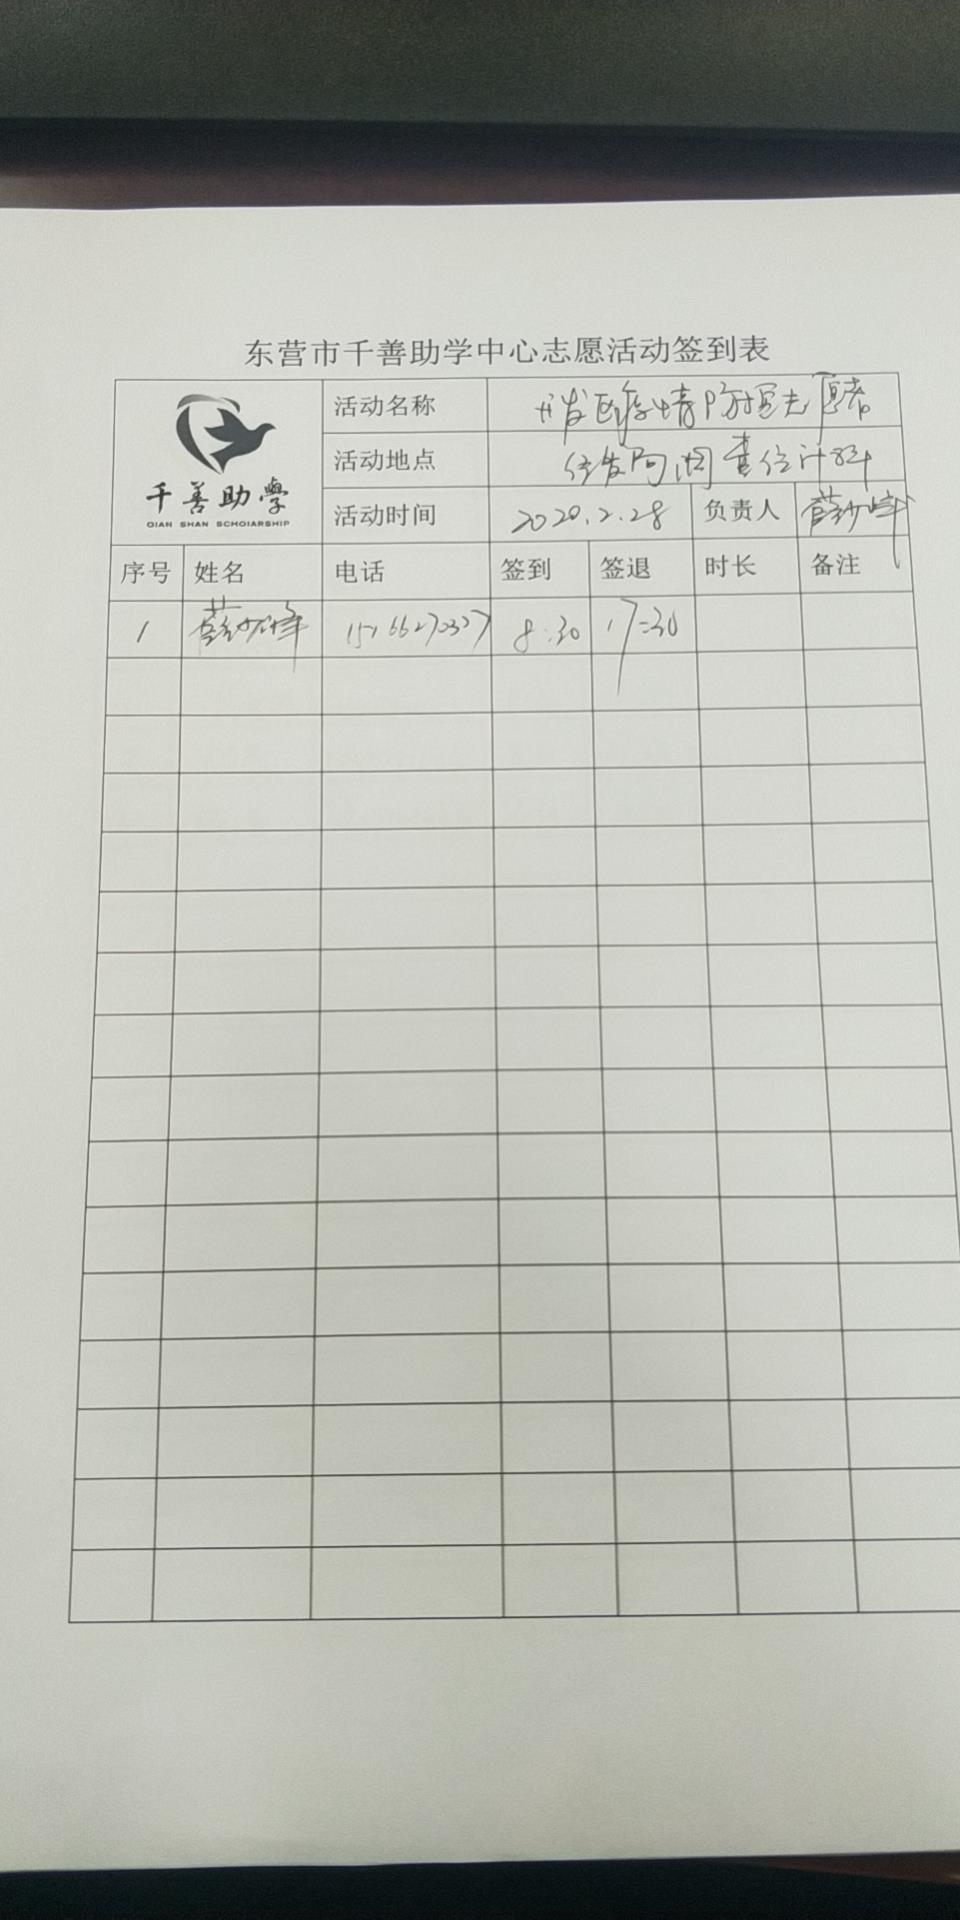 东营市千善助学中心志愿活动签到表
千善助學
QIAN SHAN SCHOIARSHIP
活动名称 开发区疫情防控志愿者
活动地点
活动时间 2020.2.28 负责人 薛少峰
序号 姓名 电话 签到 签退 时长 备注
1 薛少峰 15266270327 8:30 17:30